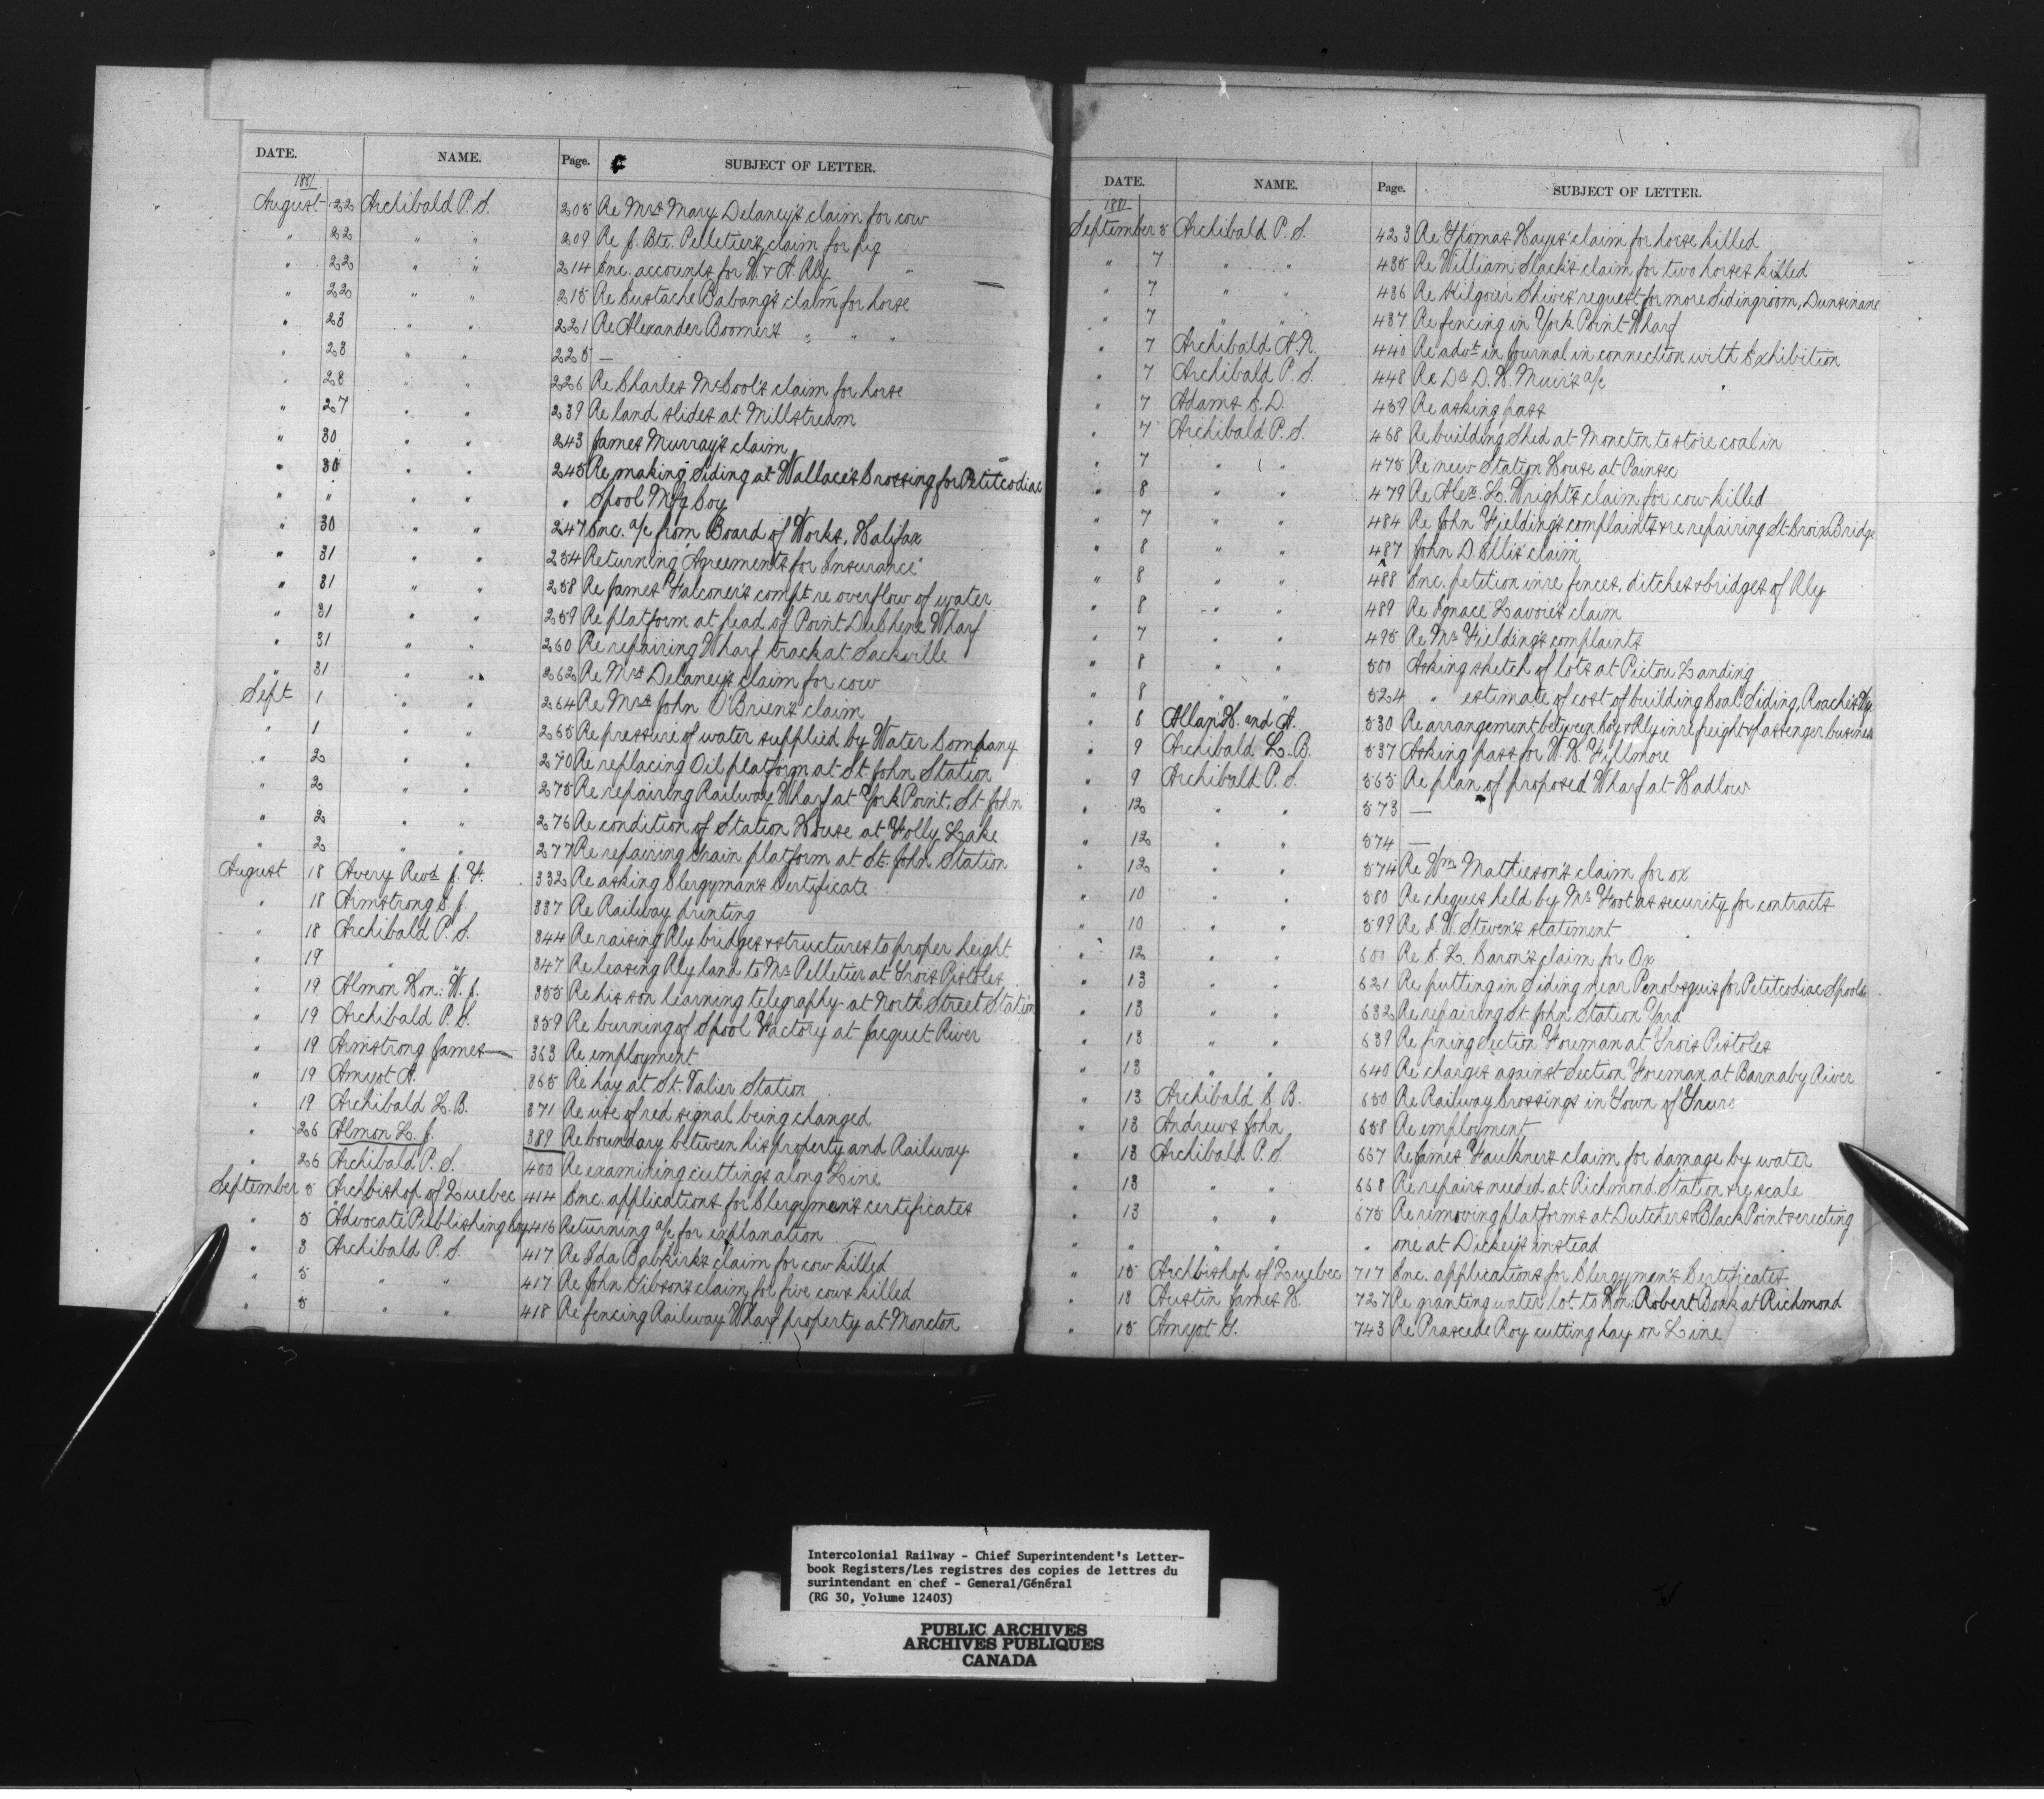 DATE. NAME. Page. SUBJECT OF LETTER.
1881
August 22 Archibald P. S. 205 Re Mrs Mary Delaney's claim for cow
" 22 " " 209 Re J. Bte. Pelletier's claim for pig
" 22 " " 214 Enc. accounts for W. & A. Rly
" 22 " " 215 Re Eustache Babang's claim for horse
" 23 " " 221 Re Alexander Boomer's " " "
" 23 " " 225 —
" 28 " " 226 Re Charles McCool's claim for horse
" 27 " " 239 Re land slides at Millstream
" 30 " " 243 James Murray's claim
" 30 " " 245 Re making Siding at Wallace's Crossing for Petitcodiac
" " " " " Spool Mfg Coy
" 30 " " 247 Enc. a/c from Board of Works, Halifax
" 31 " " 254 Returning Agreements for Insurance
" 31 " " 258 Re James Falconer's compt re overflow of water
" 31 " " 259 Re platform at head of Point DuChene Wharf
" 31 " " 260 Re repairing Wharf track at Sackville
" 31 " " 262 Re Mrs Delaney's claim for cow
Sept 1 " " 264 Re Mrs John O'Brien's claim
" 1 " " 265 Re pressure of water supplied by Water Company
" 2 " " 270 Re replacing Oil platform at St. John Station
" 2 " " 275 Re repairing Railway Wharf at York Point, St John
" 2 " " 276 Re condition of Station House at Folly Lake
" 2 " " 277 Re repairing train platform at St. John Station
August 18 Avery Revd J. F. 332 Re asking Clergyman's Certificate
" 18 Armstrong C. J. 337 Re Railway printing
" 18 Archibald P. S. 344 Re raising Rly bridges & structures to proper height
" 19 " " 347 Re leasing Rly land to Mr Pelletier at Trois Pistoles
" 19 Almon Hon: W. J. 355 Re his son learning telegraphy at North Street Station
" 19 Archibald P. S. 359 Re burning of Spool Factory at Jacquet River
" 19 Armstrong James 363 Re employment
" 19 Amyot A. 365 Re hay at St. Valier Station
" 19 Archibald L. B. 371 Re use of red signal being changed
" 26 Almon L. J. 389 Re boundary between his property and Railway
" 26 Archibald P. S. 400 Re examining cuttings along Line
September 5 Archbishop of Quebec 414 Enc. applications for Clergymen's certificates
" 5 Advocate Publishing Coy 416 Returning a/c for explanation
" 3 Archibald P. S. 417 Re Ida Babkirk's claim for cow killed
" 5 " " 417 Re John Gibson's claim for five cows killed
" 5 " " 418 Re fencing Railway Wharf property at Moncton
DATE. NAME. Page. SUBJECT OF LETTER.
1881
September 5 Archibald P. S. 423 Re Thomas Hayes' claim for horse killed
" 7 " " 435 Re William Slack's claim for two horses killed
" 7 " " 436 Re Kilgoier Shives' request for more Siding room, Dunsinane
" 7 " " 437 Re fencing in York Point Wharf
" 7 Archibald A. N. 440 Re advt in Journal in connection with Exhibition
" 7 Archibald P. S. 448 Re Dr D. H. Muir's a/c
" 7 Adams C. D. 459 Re asking pass
" 7 Archibald P. S. 468 Re building Shed at Moncton to store coal in
" 7 " " 475 Re new Station House at Painsec
" 8 " " 479 Re Alex. L. Wright's claim for cow killed
" 7 " " 484 Re John Fielding's complaints & re repairing St. Croix Bridge
" 8 " " 487 John D. Ellis' claim
" 8 " " 488 Enc. petition in re fences, ditches & bridges of Rly
" 8 " " 489 Re Ignace Lavoie's claim
" 7 " " 495 Re Mr Fielding's complaints
" 8 " " 500 Asking sketch of lots at Pictou Landing
" 8 " " 524 " estimate of cost of building Coal Siding, Roache's Wf.
" 8 Allan H. and A. 530 Re arrangement between Coy & Rly in re freight & passenger business
" 9 Archibald L. B. 537 Asking pass for W. H. Fillmore
" 9 Archibald P. S. 565 Re plan of proposed Wharf at Hadlow
" 12 " " 573 —
" 12 " " 574 —
" 12 " " 574 Re Wm Mathieson's claim for ox
" 10 " " 580 Re cheques held by Mr Foot as security for contracts
" 10 " " 599 Re I. W. Steven's statement
" 12 " " 600 Re C. L. Caron's claim for Ox
" 13 " " 621 Re putting in Siding near Penobsquis for Petitcodiac Spool Co
" 13 " " 632 Re repairing St. John Station Yard
" 13 " " 639 Re fining Section Foreman at Trois Pistoles
" 13 " " 640 Re charges against Section Foreman at Barnaby River
" 13 Archibald C B. 650 Re Railway Crossings in Town of Truro
" 13 Andrews John 658 Re employment
" 13 Archibald P. S 667 Re James Faulkner's claim for damage by water
" 13 " " 668 Re repairs needed at Richmond Station & re scale
" 13 " " 675 Re removing platforms at Dutchers & Black Point & erecting
" " " " " one at Dickey's instead
" 15 Archbishop of Quebec 717 Enc. applications for Clergymen's Certificates
" 18 Austin James H. 727 Re granting water lot to Hon: Robert Boak at Richmond
" 15 Amyot G. 743 Re Praxcede Roy cutting hay on Line
Intercolonial Railway - Chief Superintendent's Letter-
book Registers/Les registres des copies de lettres du
surintendant en chef - General/Général
(RG 30, Volume 12403)
PUBLIC ARCHIVES
ARCHIVES PUBLIQUES
CANADA